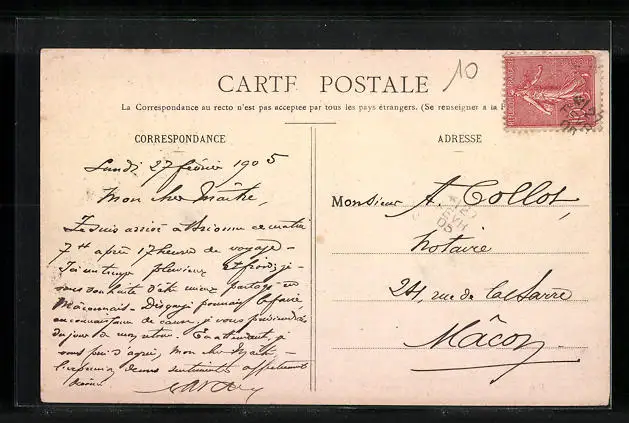 10
CARTE POSTALE
La Correspondance au recto n'est pas acceptée par tous les pays étrangers. (Se renseigner à la
CORRESPONDANCE
Lundi 27 février 1905
Mon cher Maître,
Je suis arrivé à ce matin
7h après 17 heures de voyage –
J'ai un temps pluvieux et froid, je
vous souhaite d'être mieux partagé en
Mâconnais – Dès que j'
en connaissance de cause, je vous
du jour de mon retour. En attendant, je
vous prie d'agréer, mon cher Maître,
l'expression de mes sentiments affectueux
ADRESSE
Monsieur A Collot,
Notaire
24, rue de la Barre
Mâcon